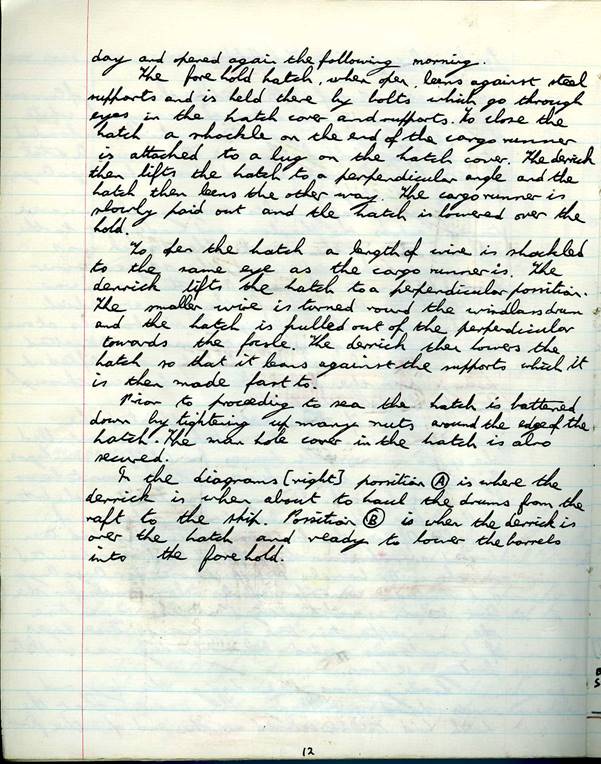 day and opened again the following morning.
The fore hold hatch, when open, leans against steel
supports and is held there by bolts which go through
eyes in the hatch cover and supports. To close the
hatch a shackle on the end of the cargo runner
is attached to a lug on the hatch cover. The derrick
then lifts the hatch to a perpendicular angle and the
hatch then leans the other way. The cargo runner is
slowly paid out and the hatch is lowered over the
hold.
To open the hatch a length of wire is shackled
to the same eye as the cargo runner is. The
derrick lifts the hatch to a perpendicular possition.
The smaller wire is turned round the windlass drum
and the hatch is pulled out of the perpendicular
towards the focsle. The derrick then lowers the
hatch so that it leans against the supports which it
is then made fast to.
Prior to proceeding to sea the hatch is battened
down by tightening up many nuts around the edge of the
hatch. The man hole cover in the hatch is also
secured.
In the diagrams [right] possition Ⓐ is where the
derrick is when about to haul the drums from the
raft to the ship. Possition Ⓑ is when the derrick is
over the hatch and ready to lower the barrels
into the fore hold.
12